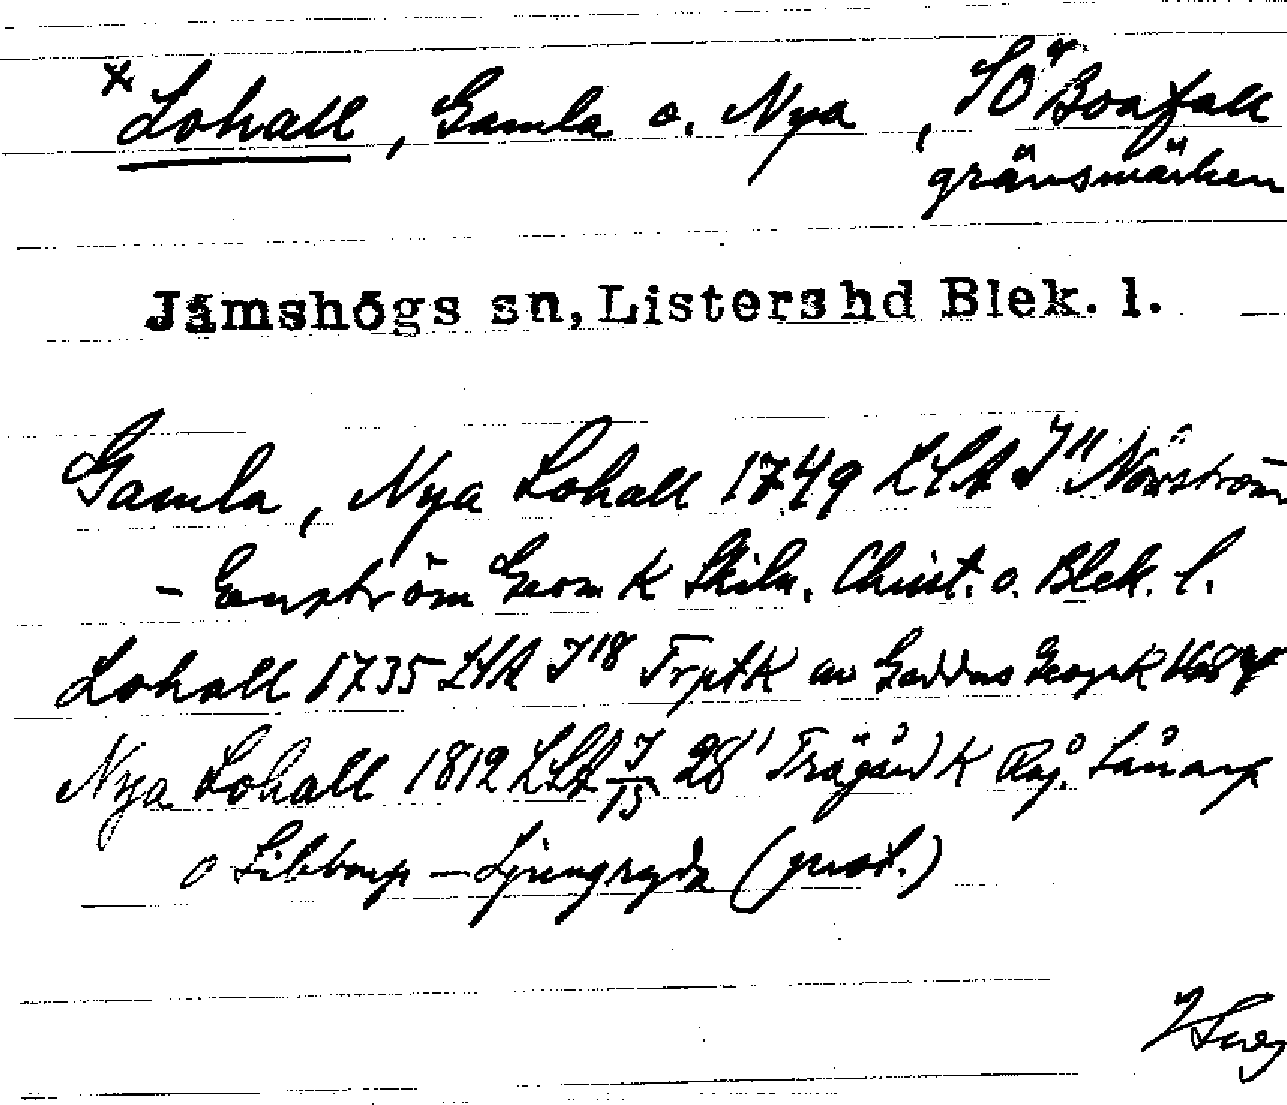 *Lohall, Gamla o. Nya, SÖ Boafall
gränsmärken
Jämshögs sn, Listers hd Blek. l.
Gamla, Nya Lohall 1749 LSA J" Norström
- Enström Geom K Skiln. Christ. o. Blek. l.
Lohall 1735 LSA J18 Trptk av Geddas Geogr K 1684
Nya Lohall 1812 LSA J/15 28' Trägård K Råj. Lånarp
o Sibbarp - Ljungryda (prot.)